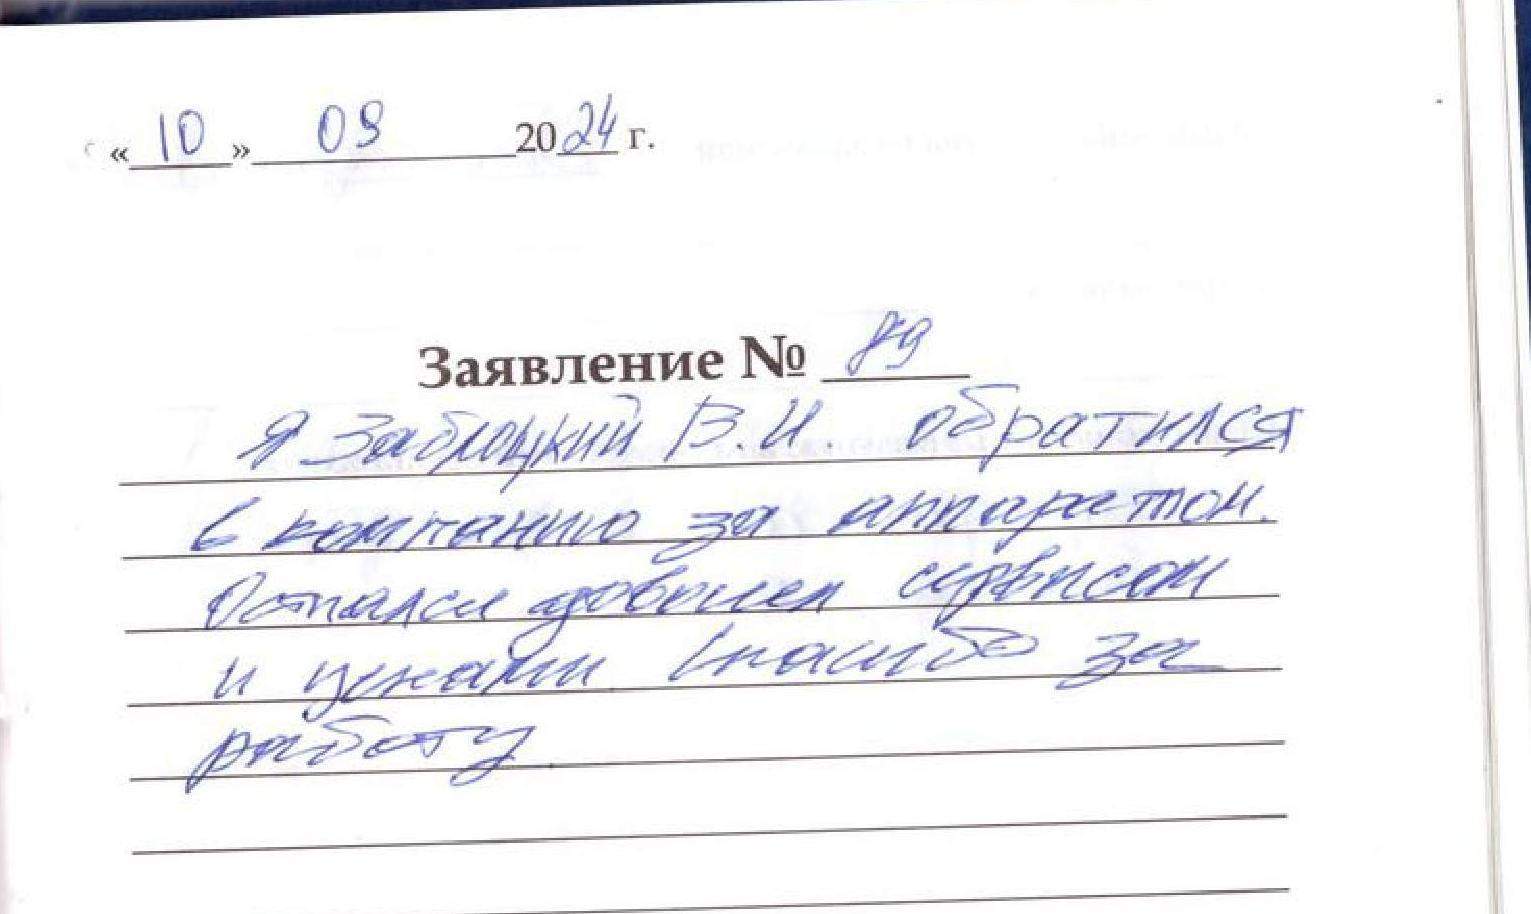 « 10 » 09 2024 г.
Заявление № 89
Я Заблоцкий В.И. обратился
в компанию за аппаратом.
Остался доволен сервисом
и ценами. Спасибо за
работу.